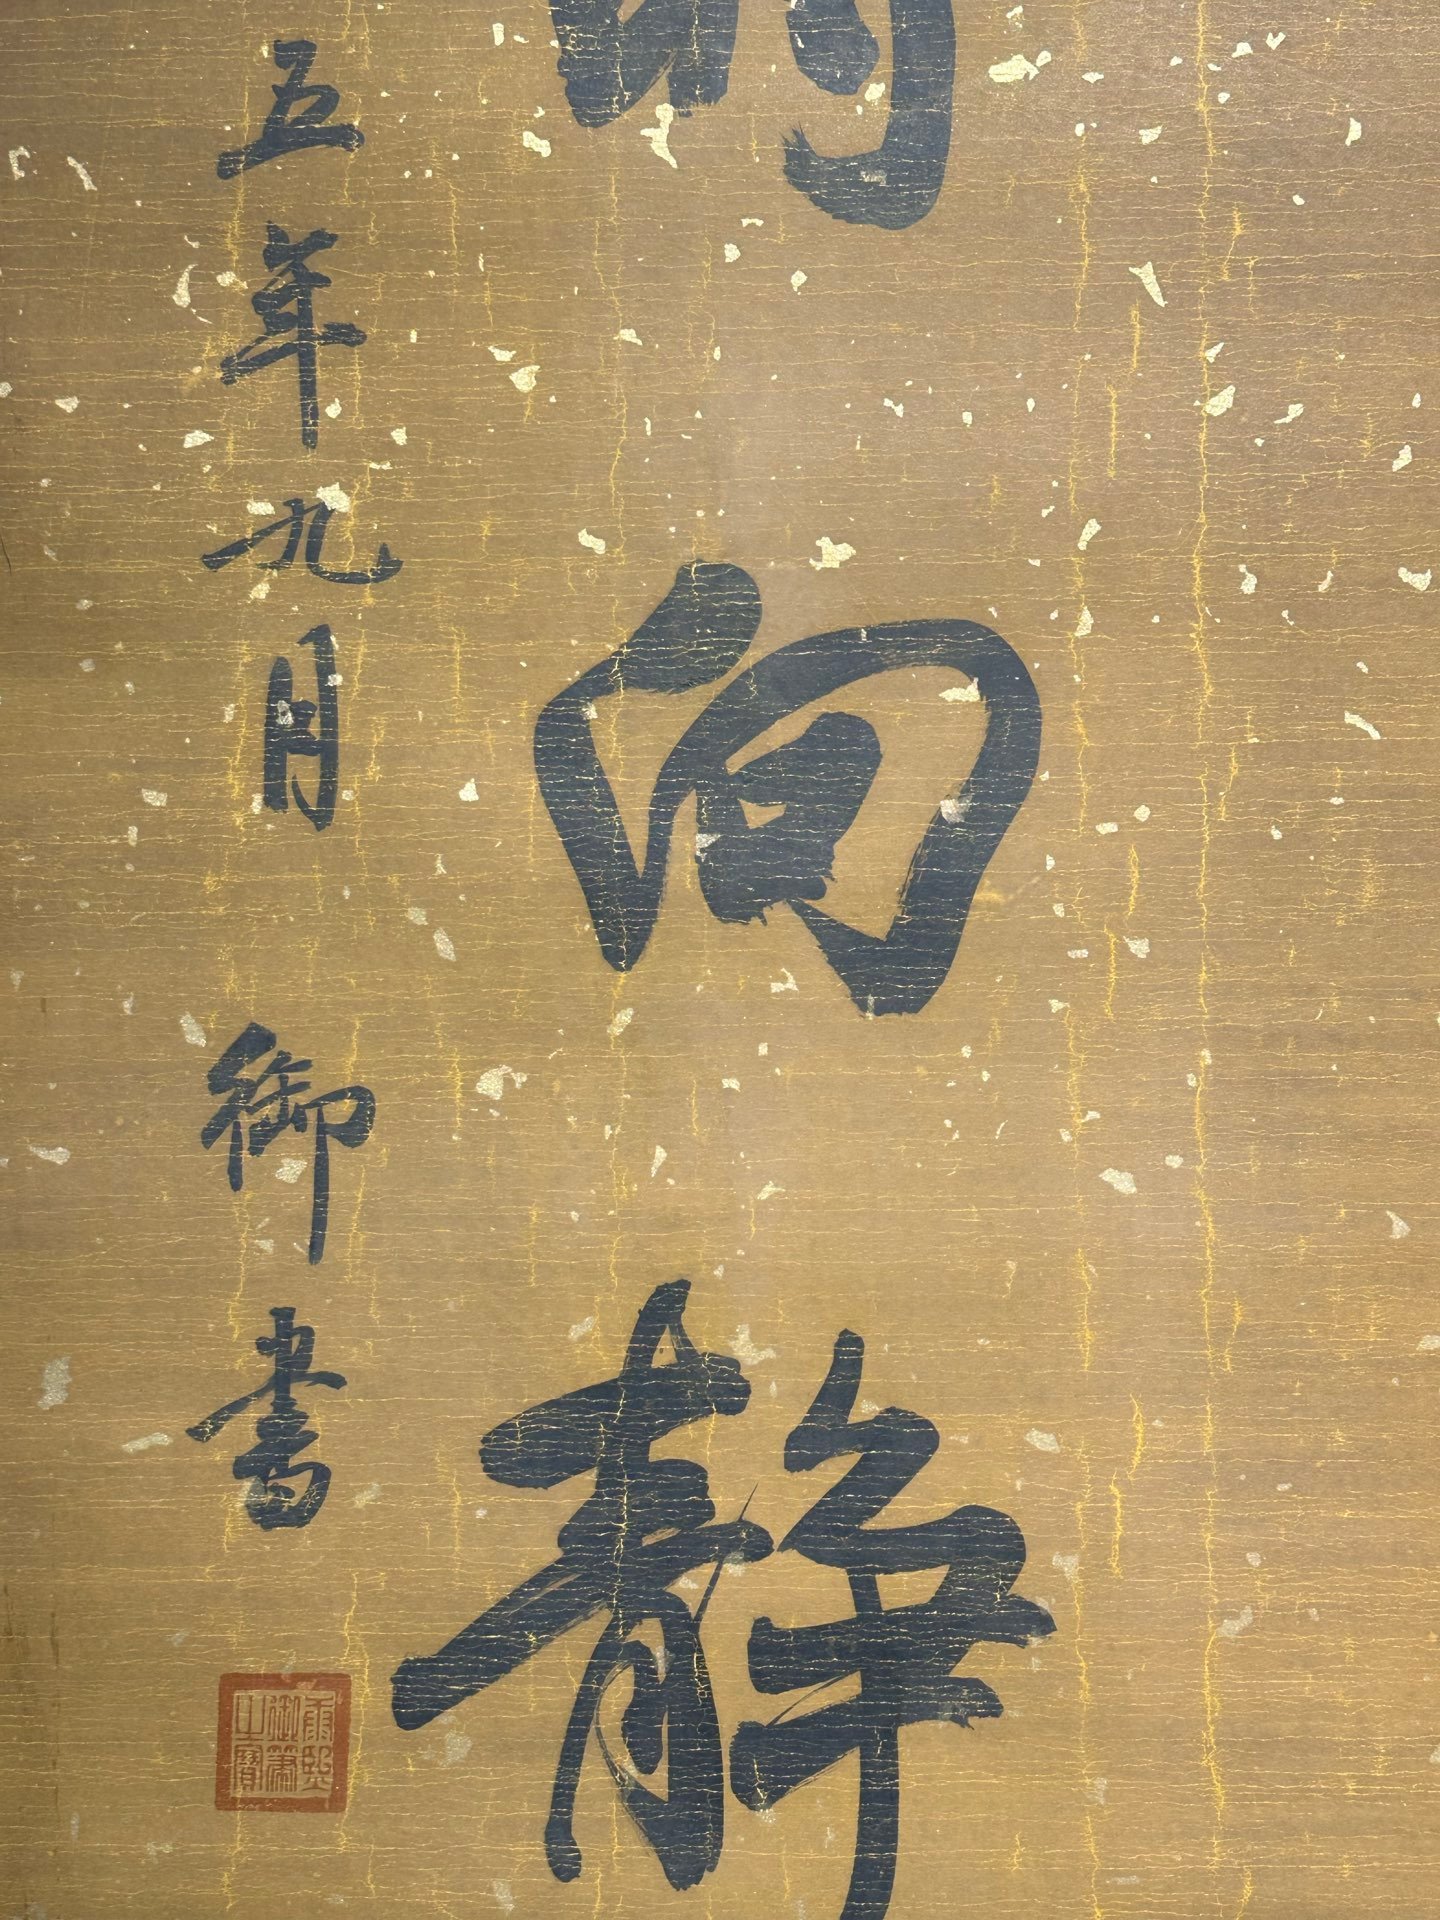 向靜
五年九月御書
康熙
御筆
之寶